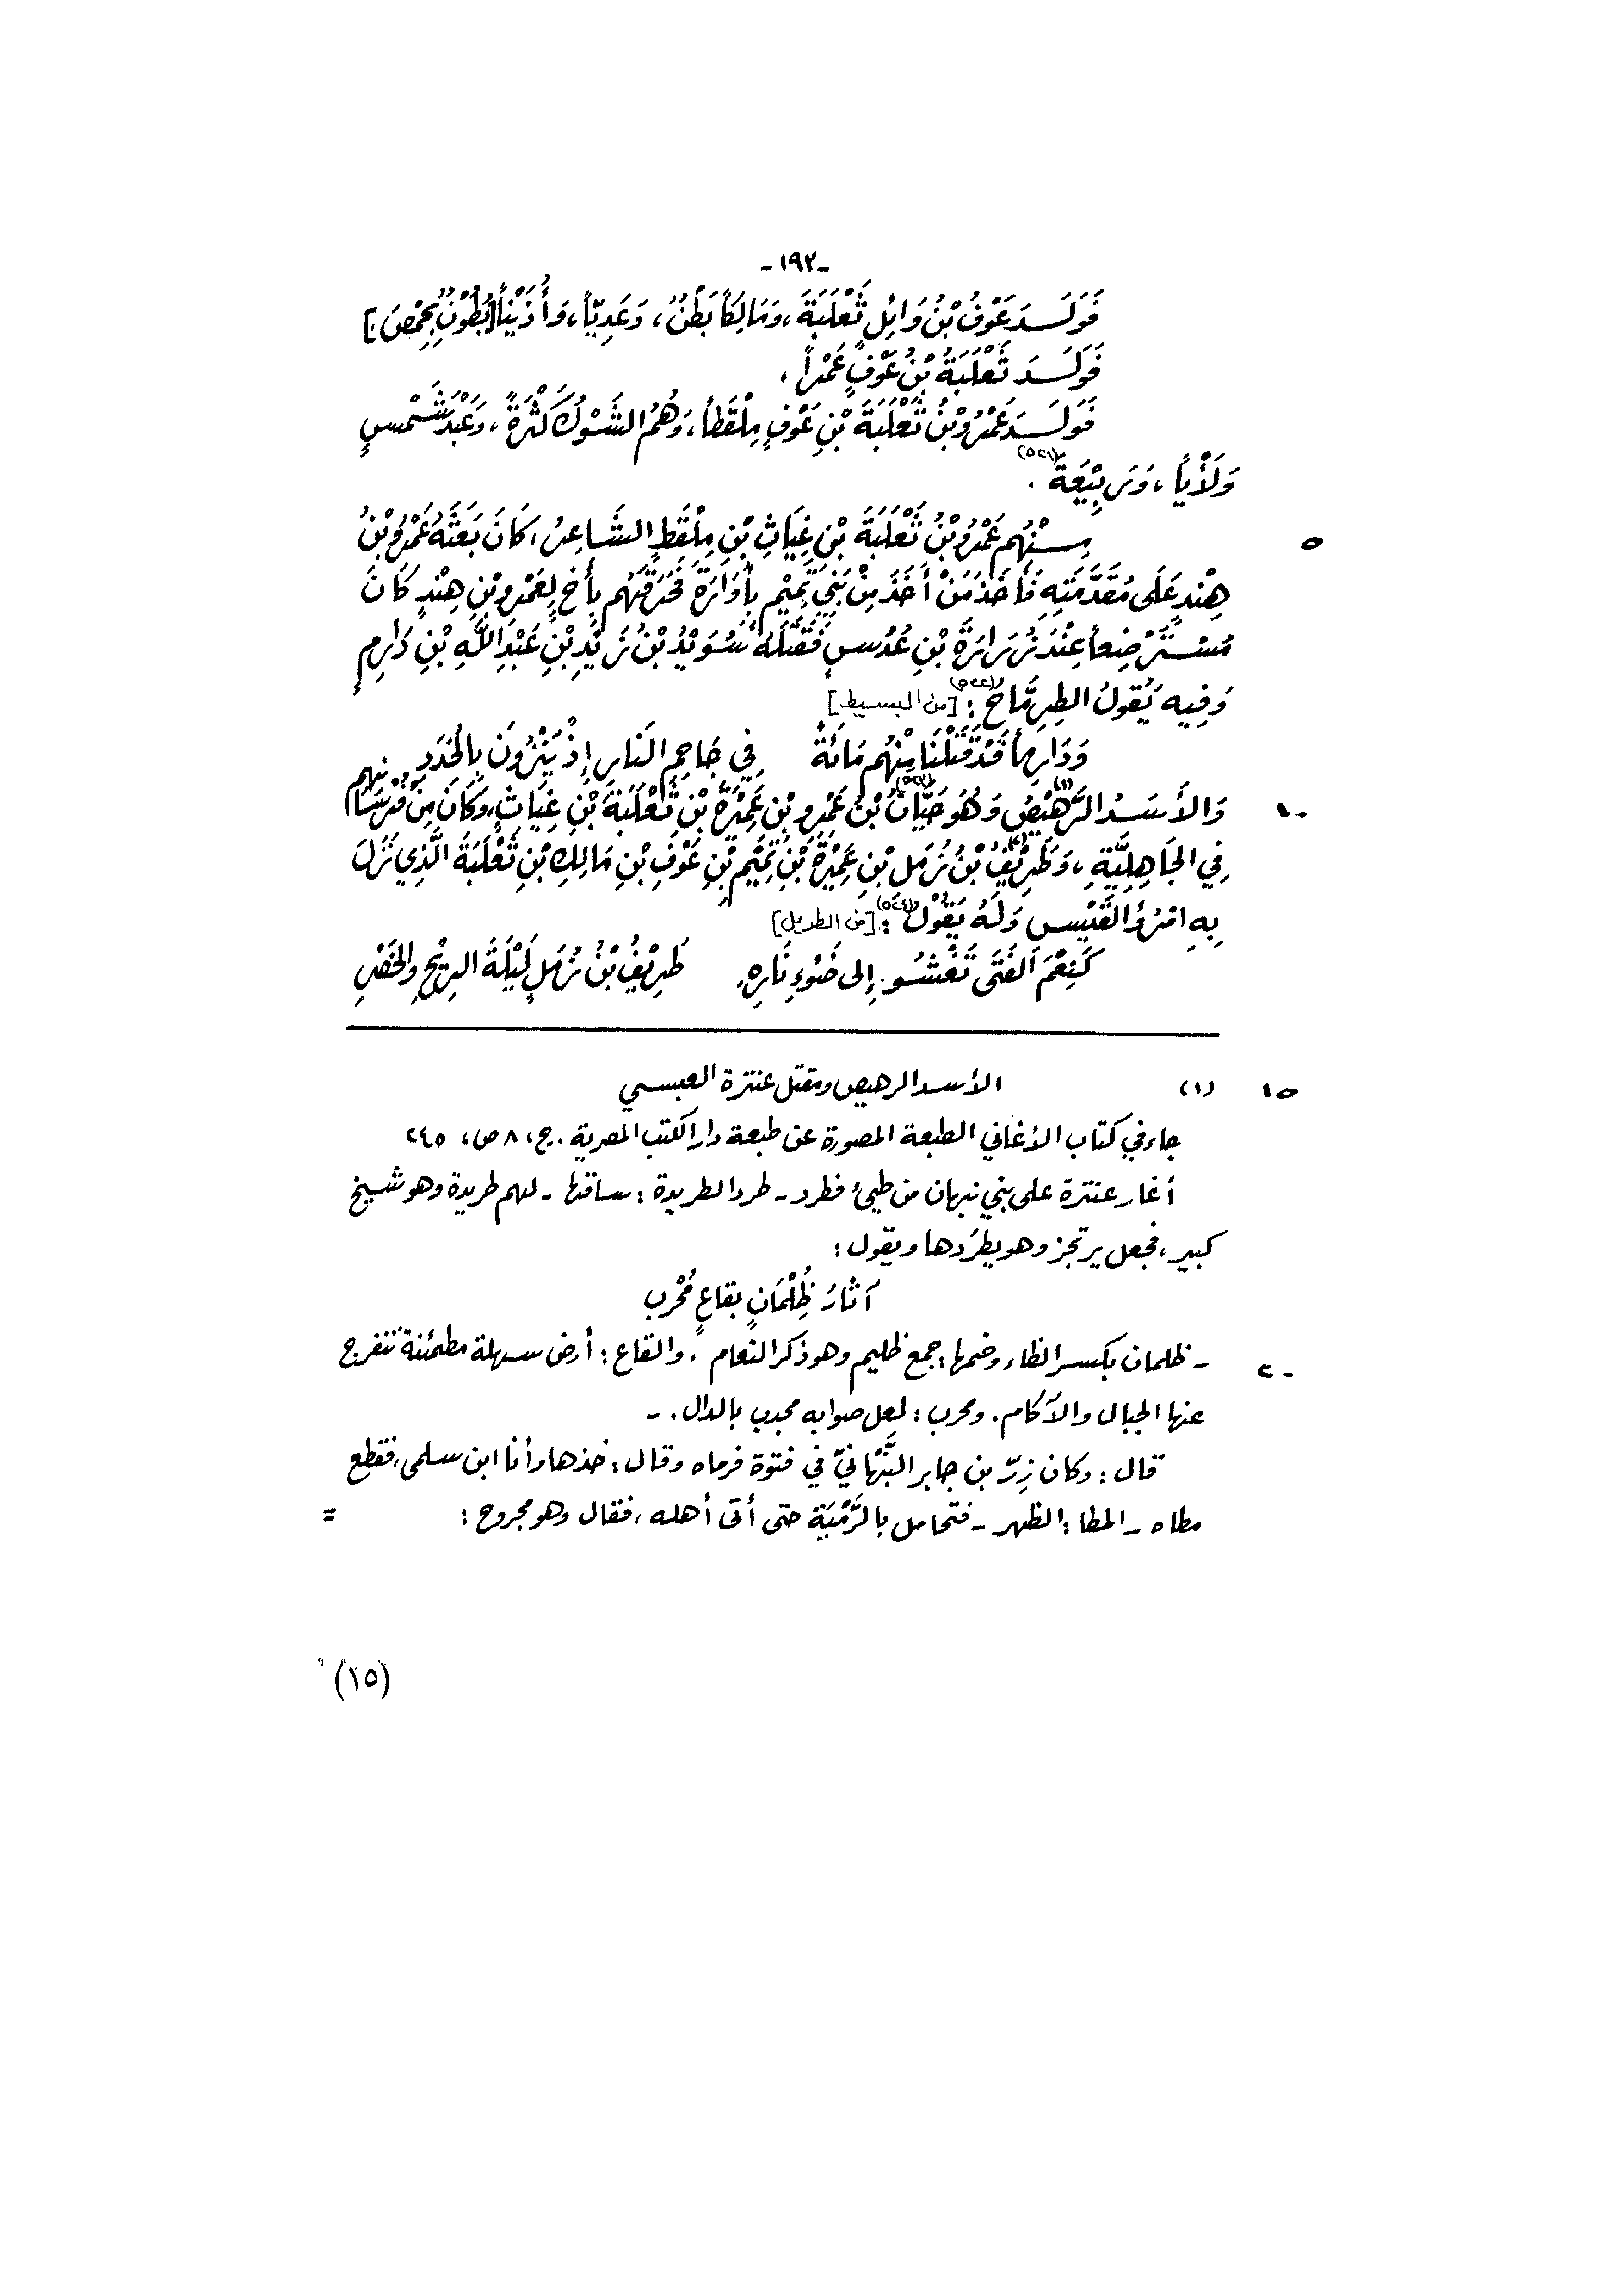 -١٩٢-
فَوَلَدَ عَوْفُ بْنُ وَائِلٍ ثَعْلَبَةَ، وَمَالِكَاً بَطْنٌ، وَعَدِيّاً، وَأُذَيْنَاً [بُطُوْنٌ بِحِمْصَ.]
فَوَلَدَ ثَعْلَبَةُ بْنُ عَوْفٍ عَمْراً.
فَوَلَدَ عَمْرُو بْنُ ثَعْلَبَةَ بْنِ عَوْفٍ مِلْقَطاً، وَهُمُ الشَّوْكُ كَثْرَةً، وَعَبْدَ شَمْسٍ
وَلَأْيَاً، وَرَبِيْعَةَ (٥٢١).
٥ مِنْهُم عَمْرُو بْنُ ثَعْلَبَةَ بْنِ غِيَاثِ بْنِ مِلْقَطٍ الشَّاعِرُ، كَانَ بَعَثَهُ عَمْرُو بْنُ
هِنْدٍ عَلَى مُقَدَّمَتِهِ فَأَخَذَ مَنْ أَخَذَ مِنْ بَنِي تَمِيْمٍ بِأُوَارَةَ فَحَرَّقَهُم بِأَخٍ لِعَمْرِو بْنِ هِنْدٍ كَانَ
مُسْتَرْضِعاً عِنْدَ زُرَارَةَ بْنِ عُدُسٍ فَقَتَلَهُ سُوَيْدُ بْنُ زَيْدِ بْنِ عَبْدِ اللَّهِ بْنِ دَارِمٍ
وَفِيهِ يَقُولُ الطِرِمَّاحُ (٥٢٢): [من البسيط]
وَدَارِماً قَدْ قَتَلْنَا مِنْهُم مَائَةً فِي جَاحِمِ النَارِ إِذْ يَنْزُونَ بِالخُدَدِ
١٠ وَالأَسَدُ الرَّهِيْصُ (١) وَهُوَ حَيَّانُ (٥٢٣) بْنُ عَمْرِو بْنِ عَمِيْرَةَ بْنِ ثَعْلَبَةَ بْنِ غِيَاثٍ، وَكَانَ مِنْ فُرْسَانِهِم
فِي الجَاهِلِيَّةِ، وَطَرِيْفُ (٢) بْنُ زُمَلِ بْنِ عَمِيْرَةَ بْنِ تَمِيْمِ بْنِ عَوْفِ بْنِ مَالِكِ بْنِ ثَعْلَبَةَ الَّذِي نَزَلَ
بِهِ امْرُؤُ القَيْسِ وَلَهُ يَقُوْلُ (٥٢٤): [من الطويل]
لَنِعْمَ الفَتَى تَعْشُو إِلى ضَوْءِ نَارِهِ طَرِيْفُ بْنُ زُمَلٍ لَيْلَةَ الرِيْحِ وَالخَصَرِ
١٥ (١) الأسد الرهيص ومقتل عنترة العبسي
جاء في كتاب الأغاني الطبعة المصورة عن طبعة دار الكتب المصرية. ج، ٨ ص، ٢٤٥
أغار عنترة على بني نبهان من طيئ فطرد - طرد الطريدة: ساقها - لهم طريدة وهو شيخ
كبير، فجعل يرتجز وهو يطرُدها ويقول:
آثارُ ظُِلْمَانٍ بقاعٍ مُحْرب
٢٠ - ظلمان بكسر الظاء وضمها: جمع ظليم وهو ذكر النعام. والقاع: أرض سهلة مطمئنة تنفرج
عنها الجبال والآكام. ومحرب: لعل صوابه مجدب بالدال. -
قال: وكان زِرّ بن جابر النَّبْهَانيّ في فتوة فرماه وقال: خذها وأنا ابن سلمى، فقطع
مطاه - المطا: الظهر - فتحامل بالرَّمْيَة حتى أتى أهله، فقال وهو مجروح: =
(١٥)